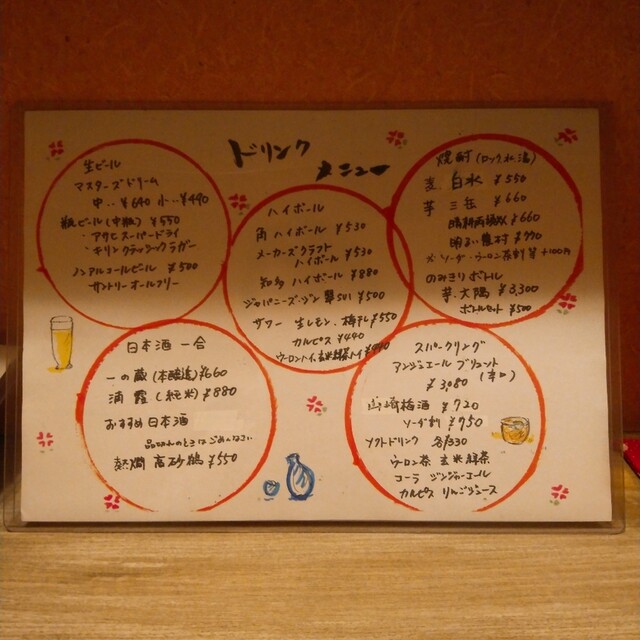 ドリンク
メニュー
生ビール
マスターズドリーム
中‥¥640 小‥¥490
瓶ビール(中瓶) ¥550
・アサヒスーパードライ
・キリンクラシックラガー
ノンアルコールビール ¥500
サントリーオールフリー
ハイボール
角ハイボール ¥530
メーカーズクラフト
ハイボール ¥530
知多ハイボール ¥880
ジャパニーズジン 翠SUI ¥500
サワー 生レモン、梅干し ¥550
カルピス ¥440
ウーロンハイ、玄米緑茶ハイ
焼酎(ロック水湯)
麦 白水 ¥550
芋 三岳 ¥660
晴耕雨読 ¥660
明るい農村
※ソーダ・ウーロン茶割 +100円
のみきりボトル
芋、大隅 ¥3,300
ボトルセット ¥500
日本酒 一合
一の蔵(本醸造) ¥660
浦霞(純米) ¥880
おすすめ日本酒
品切れのときはごめんなさい
熱燗 高砂 ¥550
スパークリング
アンジュエール ブリュット
¥3,080 (辛口)
山崎梅酒 ¥720
ソーダ割 ¥750
ソフトドリンク 各¥330
ウーロン茶 玄米緑茶
コーラ ジンジャーエール
カルピス りんごジュース